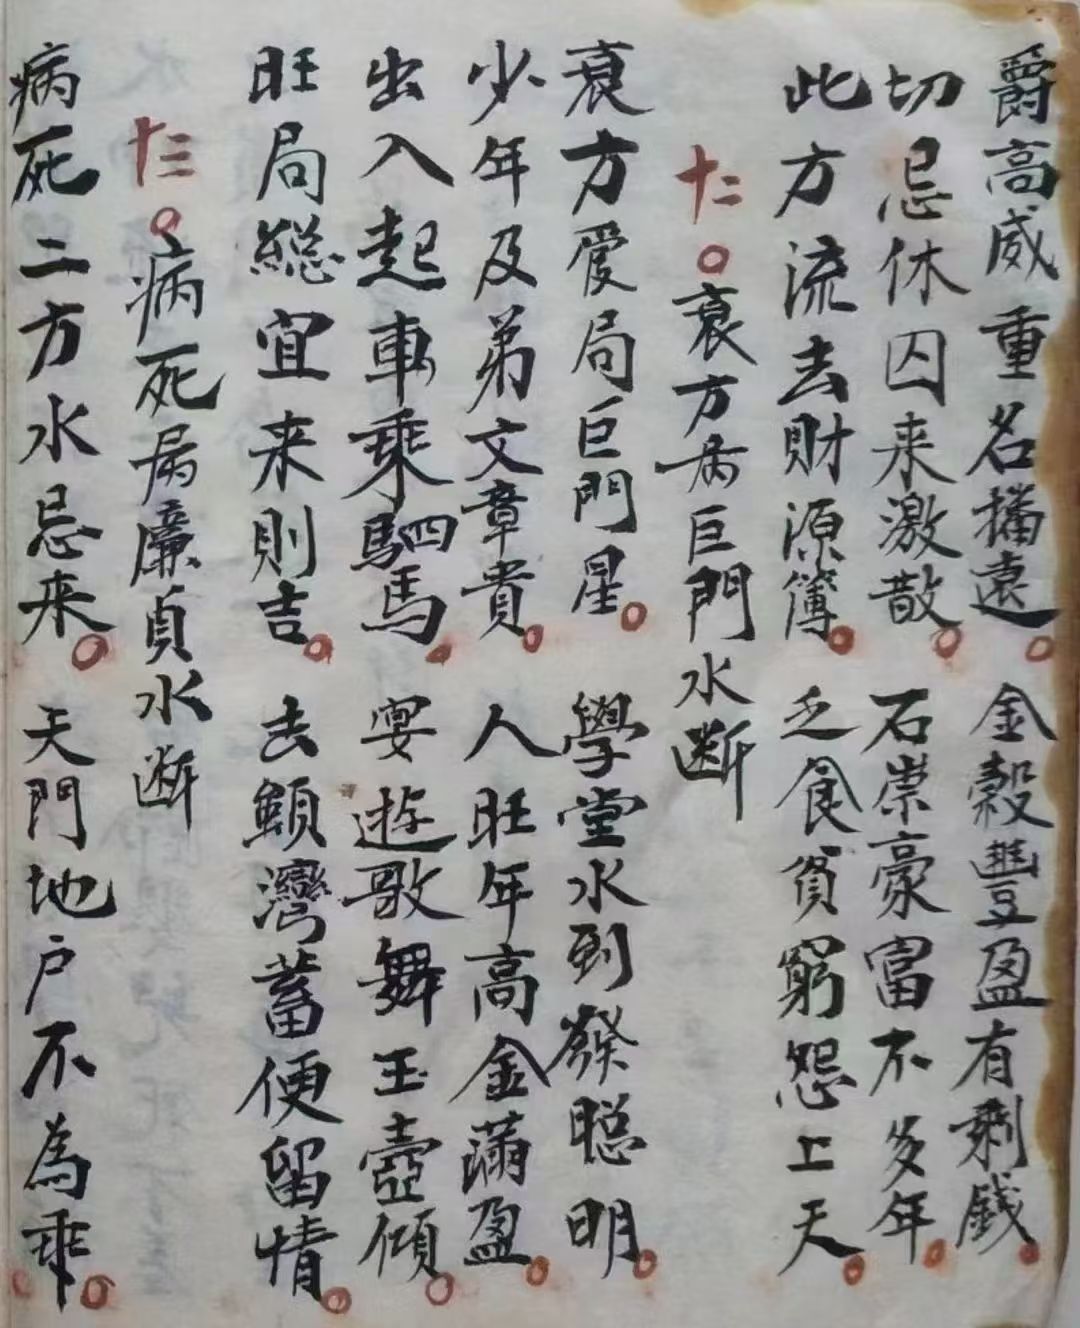 爵高威重名播遠。金穀豐盈有剩錢。
切忌休囚来激散。石崇豪富不多年。
此方流去財源簿。乏食貧窮怨上天。
十二。衰方為巨門水断
衰方爱局巨門星。學堂水到發聪明。
少年及弟文章貴。人旺年高金滿盈。
出入起車乘駟馬。宴遊歌舞玉壺傾。
旺局縂宜来則吉。去顊灣蓄便留情。
十三。病死為廉貞水断
病死二方水忌来。天門地户不為乖。